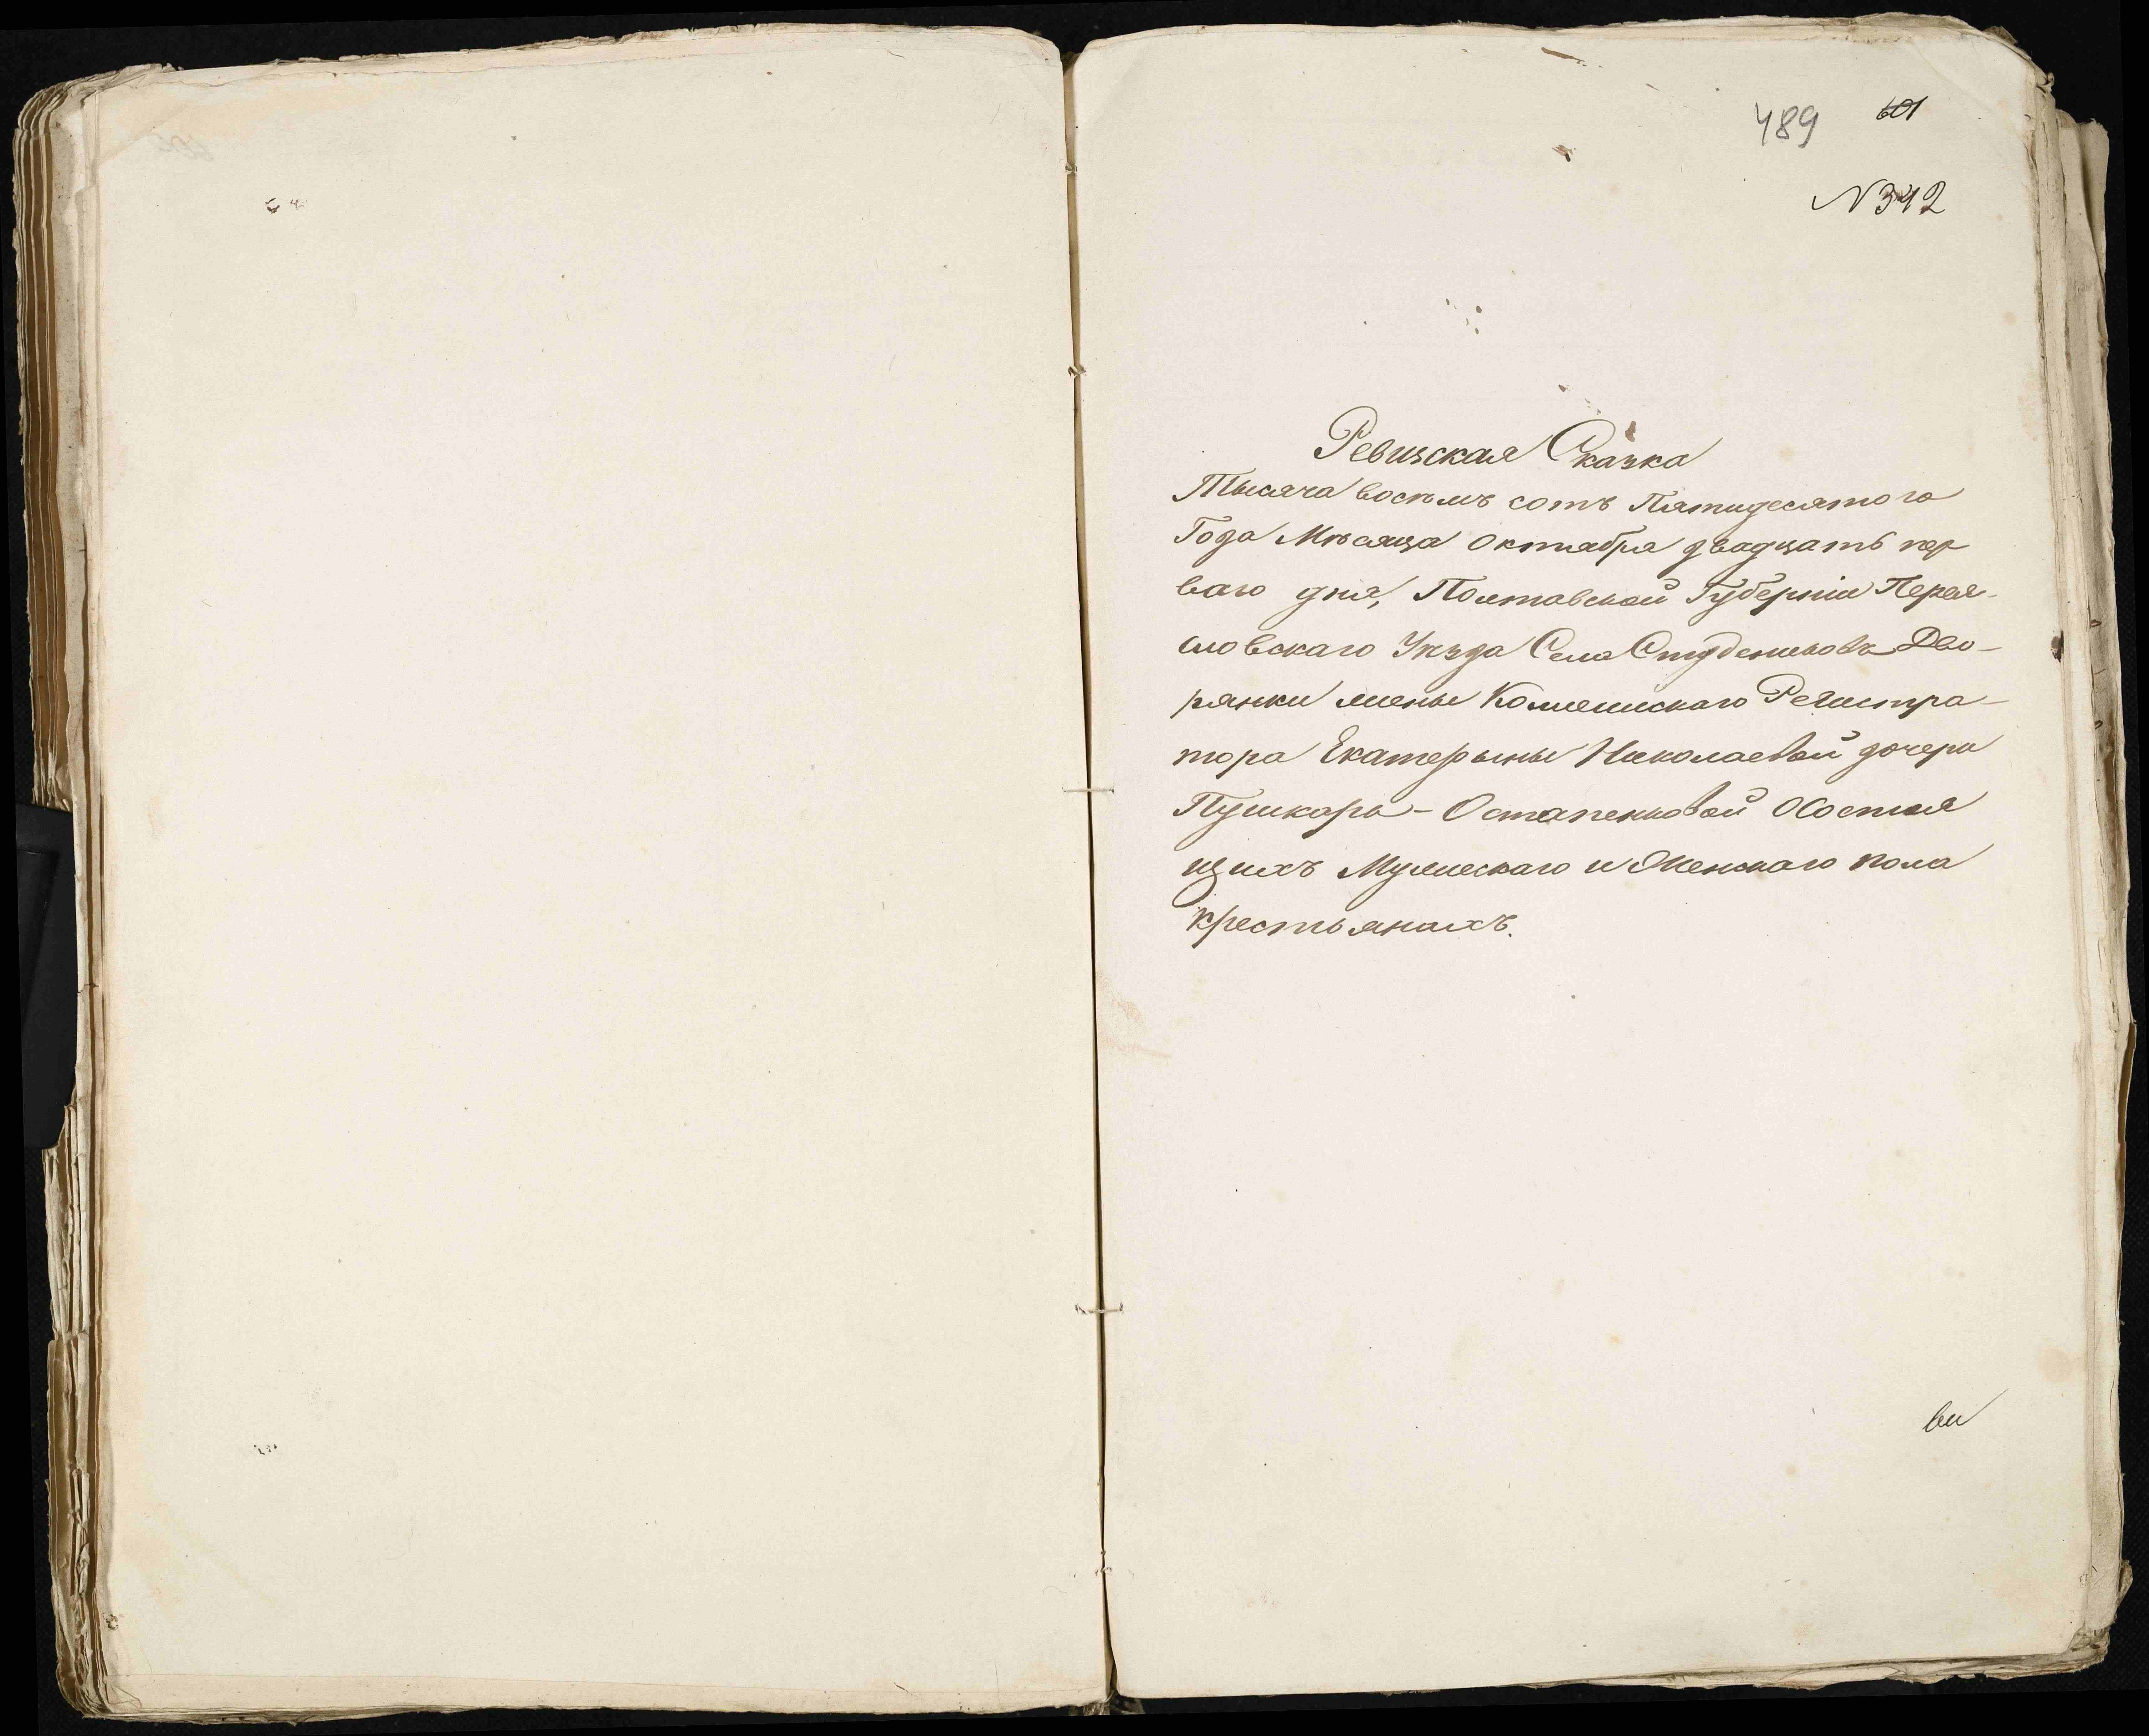 489 601
N 342
Ревизская Сказка
Тысяча восѣмъ сотъ Пятидесятого
Года Мѣсяца Октября двадцать пер
ваго дня, Полтавской Губерніи Перея-
словскаго Уѣзда Села Студениковъ Дво-
рянки жены Коллежскаго Регистра-
тора Екатерыны Николаевой дочери
Пушкаръ-Остапенковой О Состоя
щихъ Мужескаго и Женскаго пола
крестьянахъ.